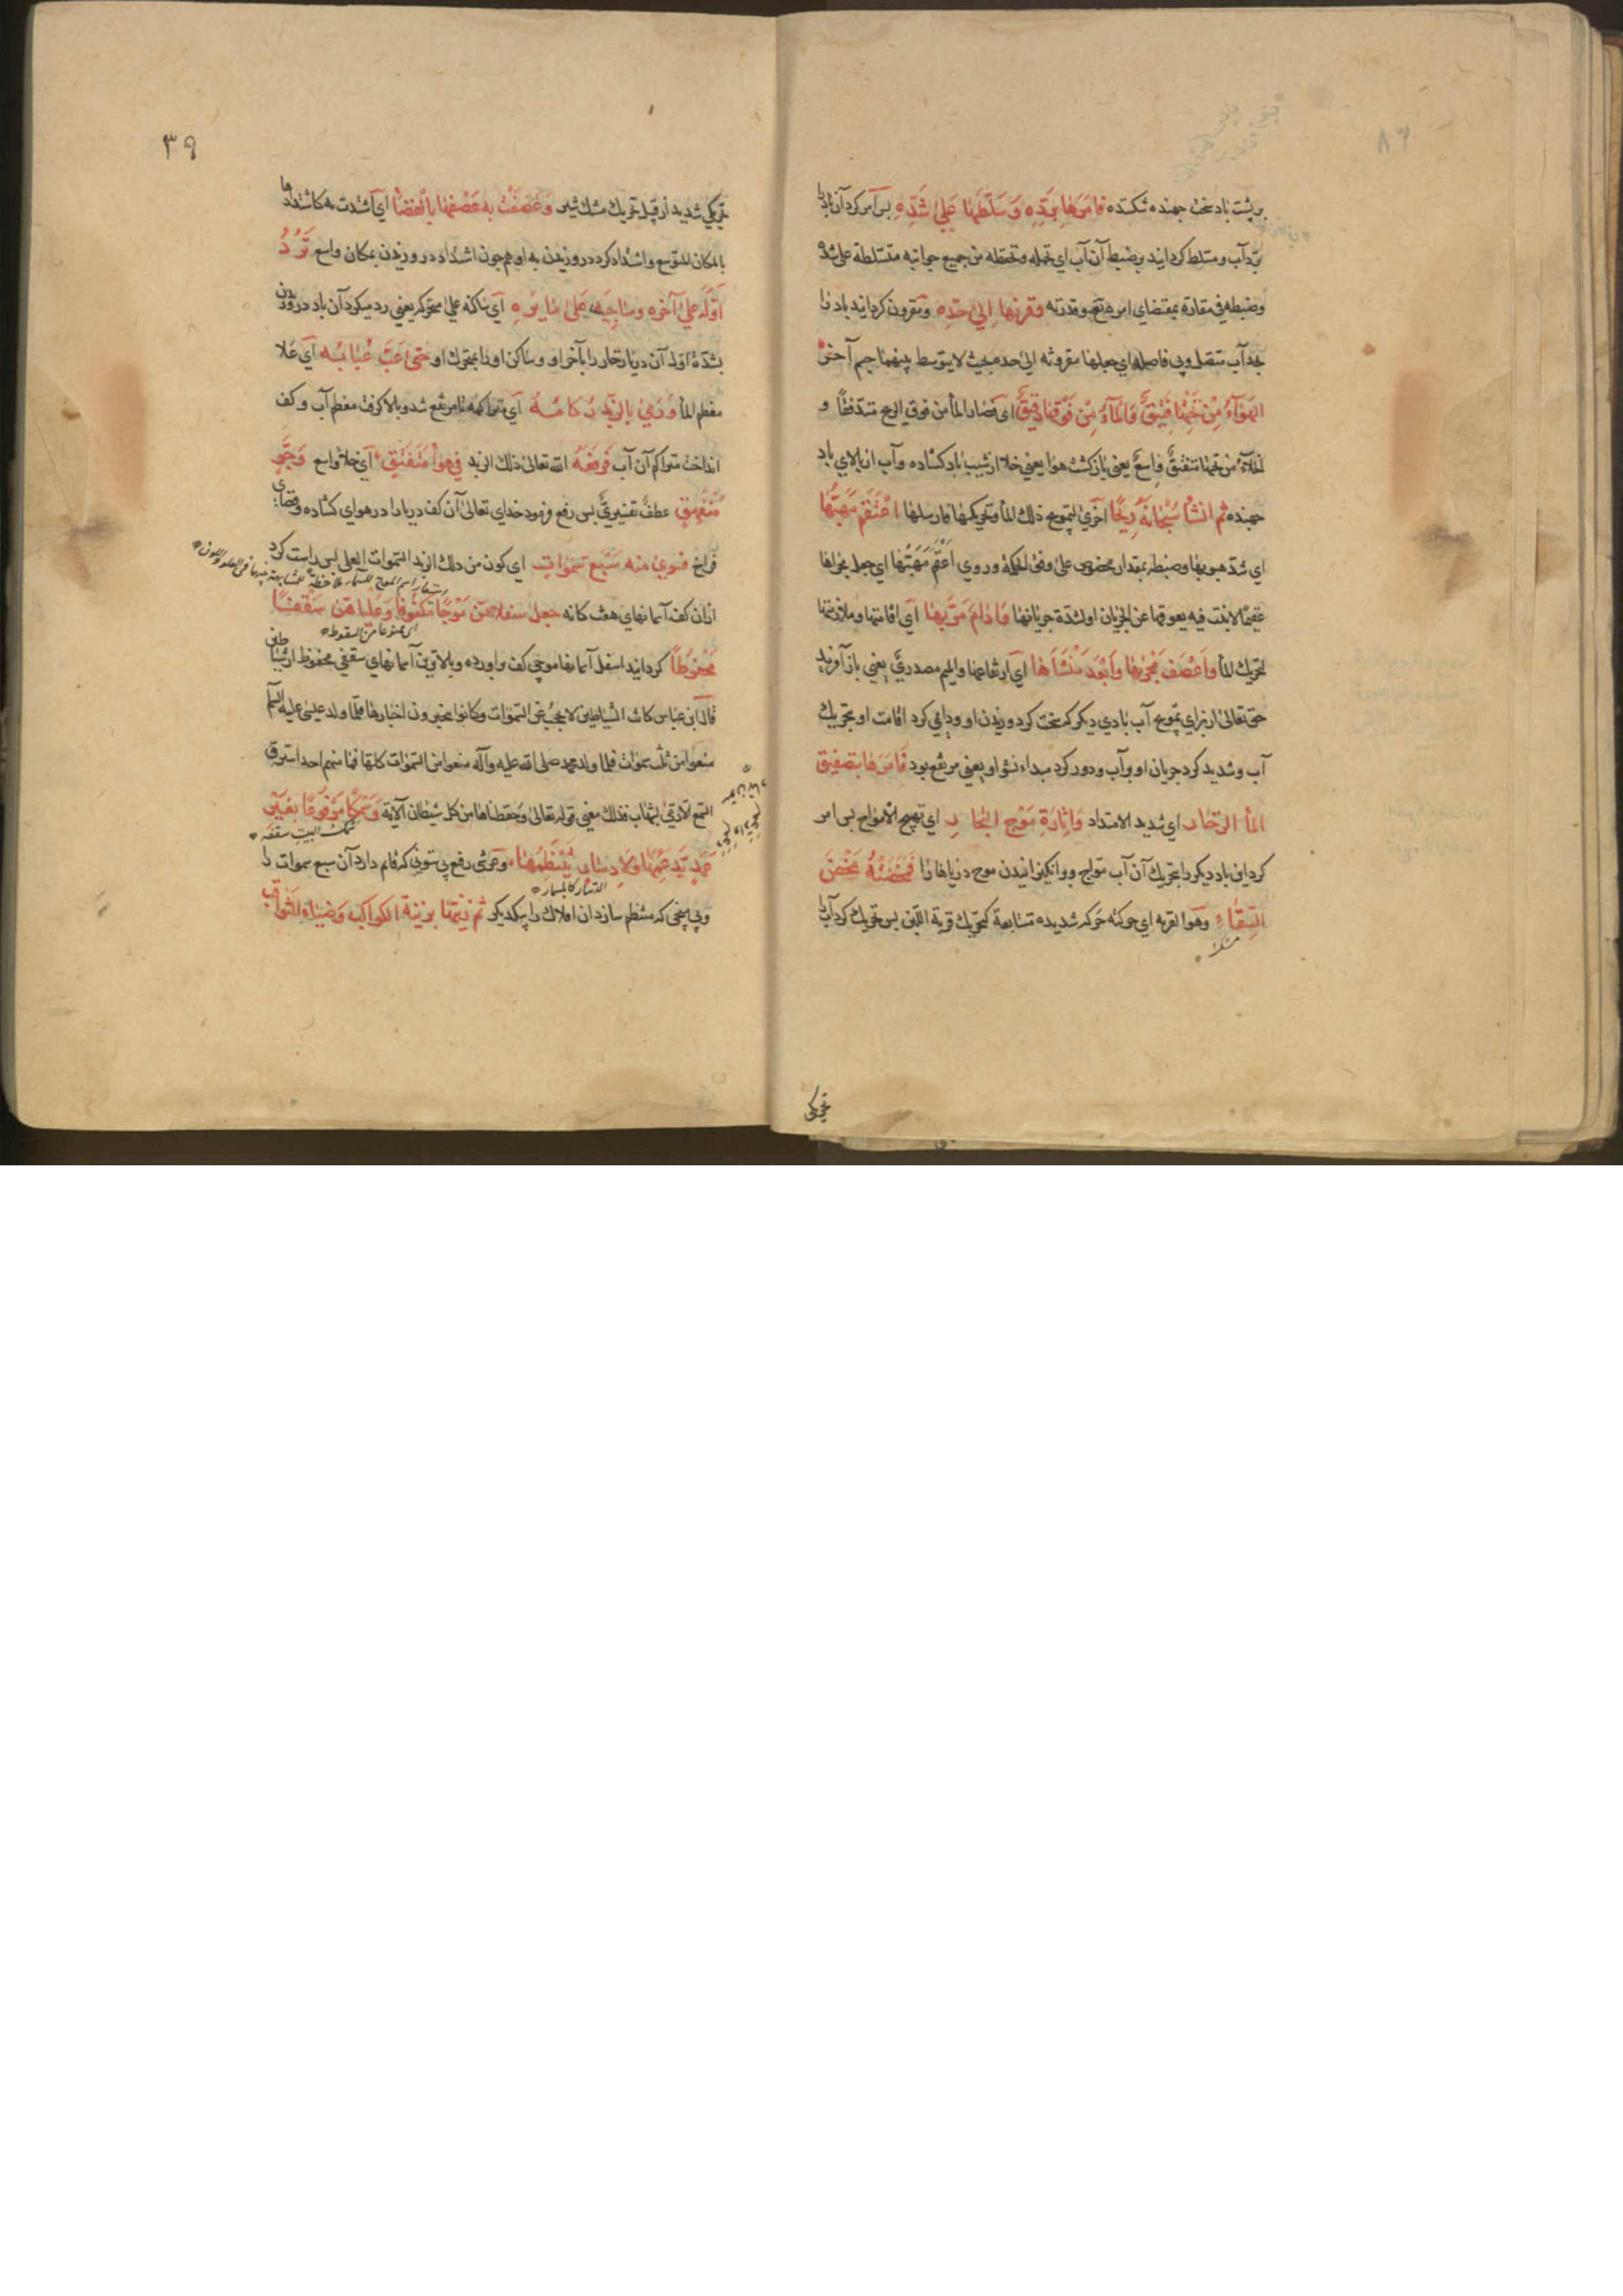 بر پشت باد سخت جهنده شكننده فامرها بردّه وَسَلَّطَهَا عَلىٰ شَدِّهِ پس امر كرد آن باد را
بردّ آب و مسلط كردانيد بر ضبط آن آب اى تحمله و تحفظه من جميع جوانبه متسلطة على شدّه
وضبطه فى مقاره بمقتضاى امره تعالى و قدرته وقرنها اِلىٰ حدّه و مقرون كردانيد باد را
بحد آب متصل و بى فاصله اى جعلها مقرونة الى حده بحيث لا يتوسط بينهما جسم آخر
الهَوَآءُ مِنْ تَحْتِهَا فَتِيْقٌ وَالمَآءُ مِنْ فَوْقِهَا دَفِيْقٌ اى فصار الماء من فوق الريح متدفقًا و
الخلاء من تحتها منفتق واسعٌ يعنى باز كشت هوا يعنى خلا از شيب باد كشاده و آب از بالاى باد
جهنده ثم انشأ سُبْحانَهُ رِيحًا اخرى لتمويج ذلك الماء و تحريكها فارسلها اعْتَقَمَ مَهَبَّهَا
اى شدّ هبوبها و ضبطه بمقدار مخصوص على وفق الحكمة و روى اَعْقَمَ مَهَبَّهَا اى جعل مجراها
عقيمًا لا نبت فيه يعوقها عن الجريان او لشدّة جريانها وَاَدَامَ مُرَبَّهَا اى اقامتها و ملازمتها
لتحريك الماء وَاَعْصَفَ مَجْرٰيهَا وَاَبْعَدَ مَنْشَأَهَا اى ارتفاعها والميم مصدرىٌّ يعنى باز آفريد
حق تعالى از براى تموّج آب بادى ديكر كه سخت كرد وزيدن او و دايمى كرد اقامت او بتحريك
آب و شديد كرد جريان او بر آب و دور كرد مبداء نشو او يعنى مرتفع بود فَاَمَرَهَا بتصفيق
الماء الزخّار اى شديد الامتداد وَاِثَارَةِ مَوْجِ البِحَارِ اى تهييج الامواج پس امر
كرد اين باد ديكر را بتحريك آن آب موّاج و برانكيزانيدن موج درياها را فَمَخَضَتْهُ مَخْضَ
السِّقَاءِ وهو القربه اى حركته حركه شديده متتابعة كتحريك قربة اللبن پس تحريك كرد آب را
مشك
تحريكى
٣٩
تحريكى شديد از قبيل تحريك مشك شير وَعَصَفَتْ بِهِ عَصْفَهَا بِالْفَضَا اى اشتدت به كاشتدادها
بالمكان المتوسع و اشتداد كرد در وزيدن به او هم چون اشتداد در وزيدن بمكان واسع تَرُدُّ
اَوَّلَهُ عَلىٰ آخره وَسَاجِيَهُ عَلىٰ مَايِرِهِ اى ساكنه على متحركه يعنى رد ميكرد آن باد در وزيدن
بشدّة اول آن درياء زخار را بآخر او و ساكن او را بمتحرك او حَتّى عَبَّ عُبَابُهُ اى علا
معظم الماء وَرَمىٰ بِالزَّبَدِ رُكَامُهُ اى متراكمه تا مرتفع شد و بالا كرفت معظم آب و كف
انداخت متراكم آن آب فَرَفَعَهُ الله تعالى ذلك الزبد فِى هَوَاءٍ مُنْفَتِقٍ اى خلاء واسع وَجَوٍّ
مُنْفَهِقٍ عطفٌ تفسيرىٌّ پس رفع فرمود خداى تعالى آن كف دريا را در هواى كشاده و فضاى
فراخ فسوىٰ منه سَبْعَ سَمٰوَاتٍ اى كوّن من ذلك الزبد السموات العلى پس راست كرد
ازان كف آسمانهاى هفت كانه جعل سفلاهن مَوْجًا مَكْفُوفًا وَعُلْيَاهُنَّ سَقْفًا
اى ممنوعا من السقوط
مَحْفُوظًا كردانيد اسفل آسمانها موجى كف برآورده و بالاترين آسمانهاى سقفى محفوظ از شياطين
قال ابن عباس كانت الشياطين لا تحجب عن السموات و كانوا يخبرون اخبارها فلما ولد عيسى عليه السلم
منعوا من ثلث سموات فلما ولد محمد صلى الله عليه وآله منعوا من السموات كلها فما منهم احد استرق
السمع الا رمى بشهاب فذلك معنى قوله تعالى وحفظناها من كل شيطان الآية وَسَمْكًا مَرْفُوعًا بِغَيْرِ
سمك البيت سقفه
عَمَدٍ يَدْعَمُهَا وَلَا دِسَارٍ يَنْتَظِمُهَا و عرشى رفع بى ستونى كه قايم دارد آن سبع سموات را
الدسار كالمسمار
و بى ميخى كه منتظم سازد آن افلاك را بيكديكر ثم زَيَّنَهَا بِزِينَةِ الكَوَاكِبِ وَضِيَاءِ الثَّوَاقِبِ